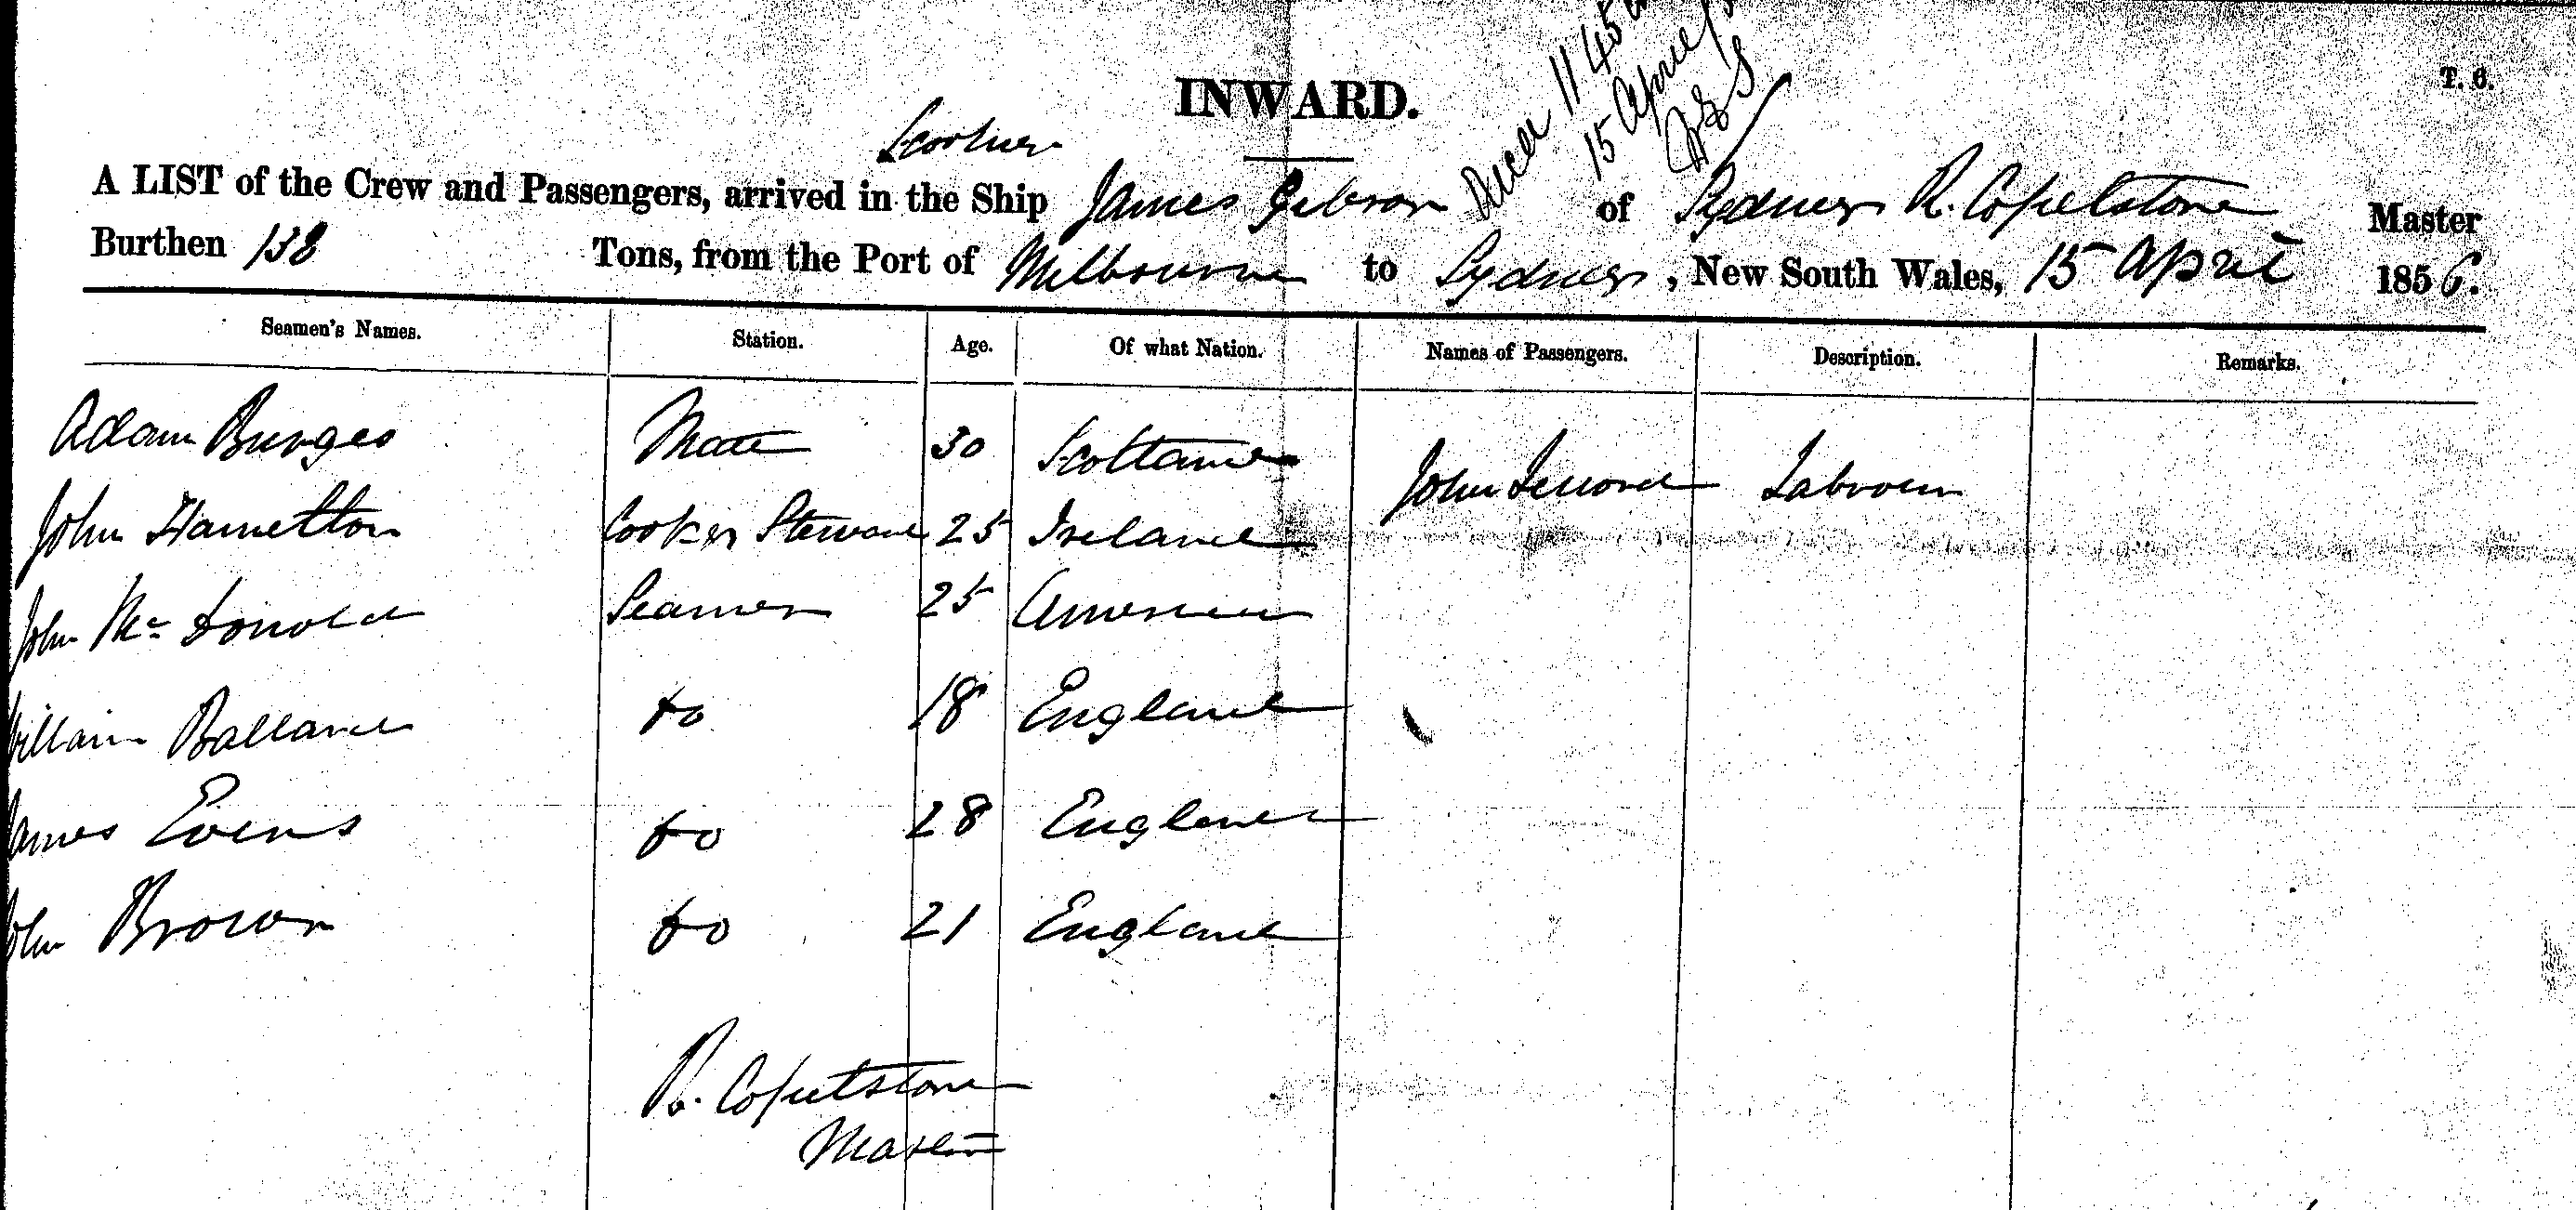 INWARD.
T. 6.
11 45
15 April
Scooner
A LIST of the Crew and Passengers, arrived in the Ship James Gibson of Sydney R. Copelstone Master
Burthen 138 Tons, from the Port of Melbourne to Sydney, New South Wales, 15 April 1856.
Seamen's Names. Station. Age. Of what Nation. Names of Passengers. Description. Remarks.
Adam Burges Mate 30 Scotland John Labrour
John Hamelton Cook & Steward 25 Ireland
John Mc Donold Seamen 25 America
William Balland Do 18 England
James Evens Do 28 England
John Brown Do 21 England
R. Copelstone
Master